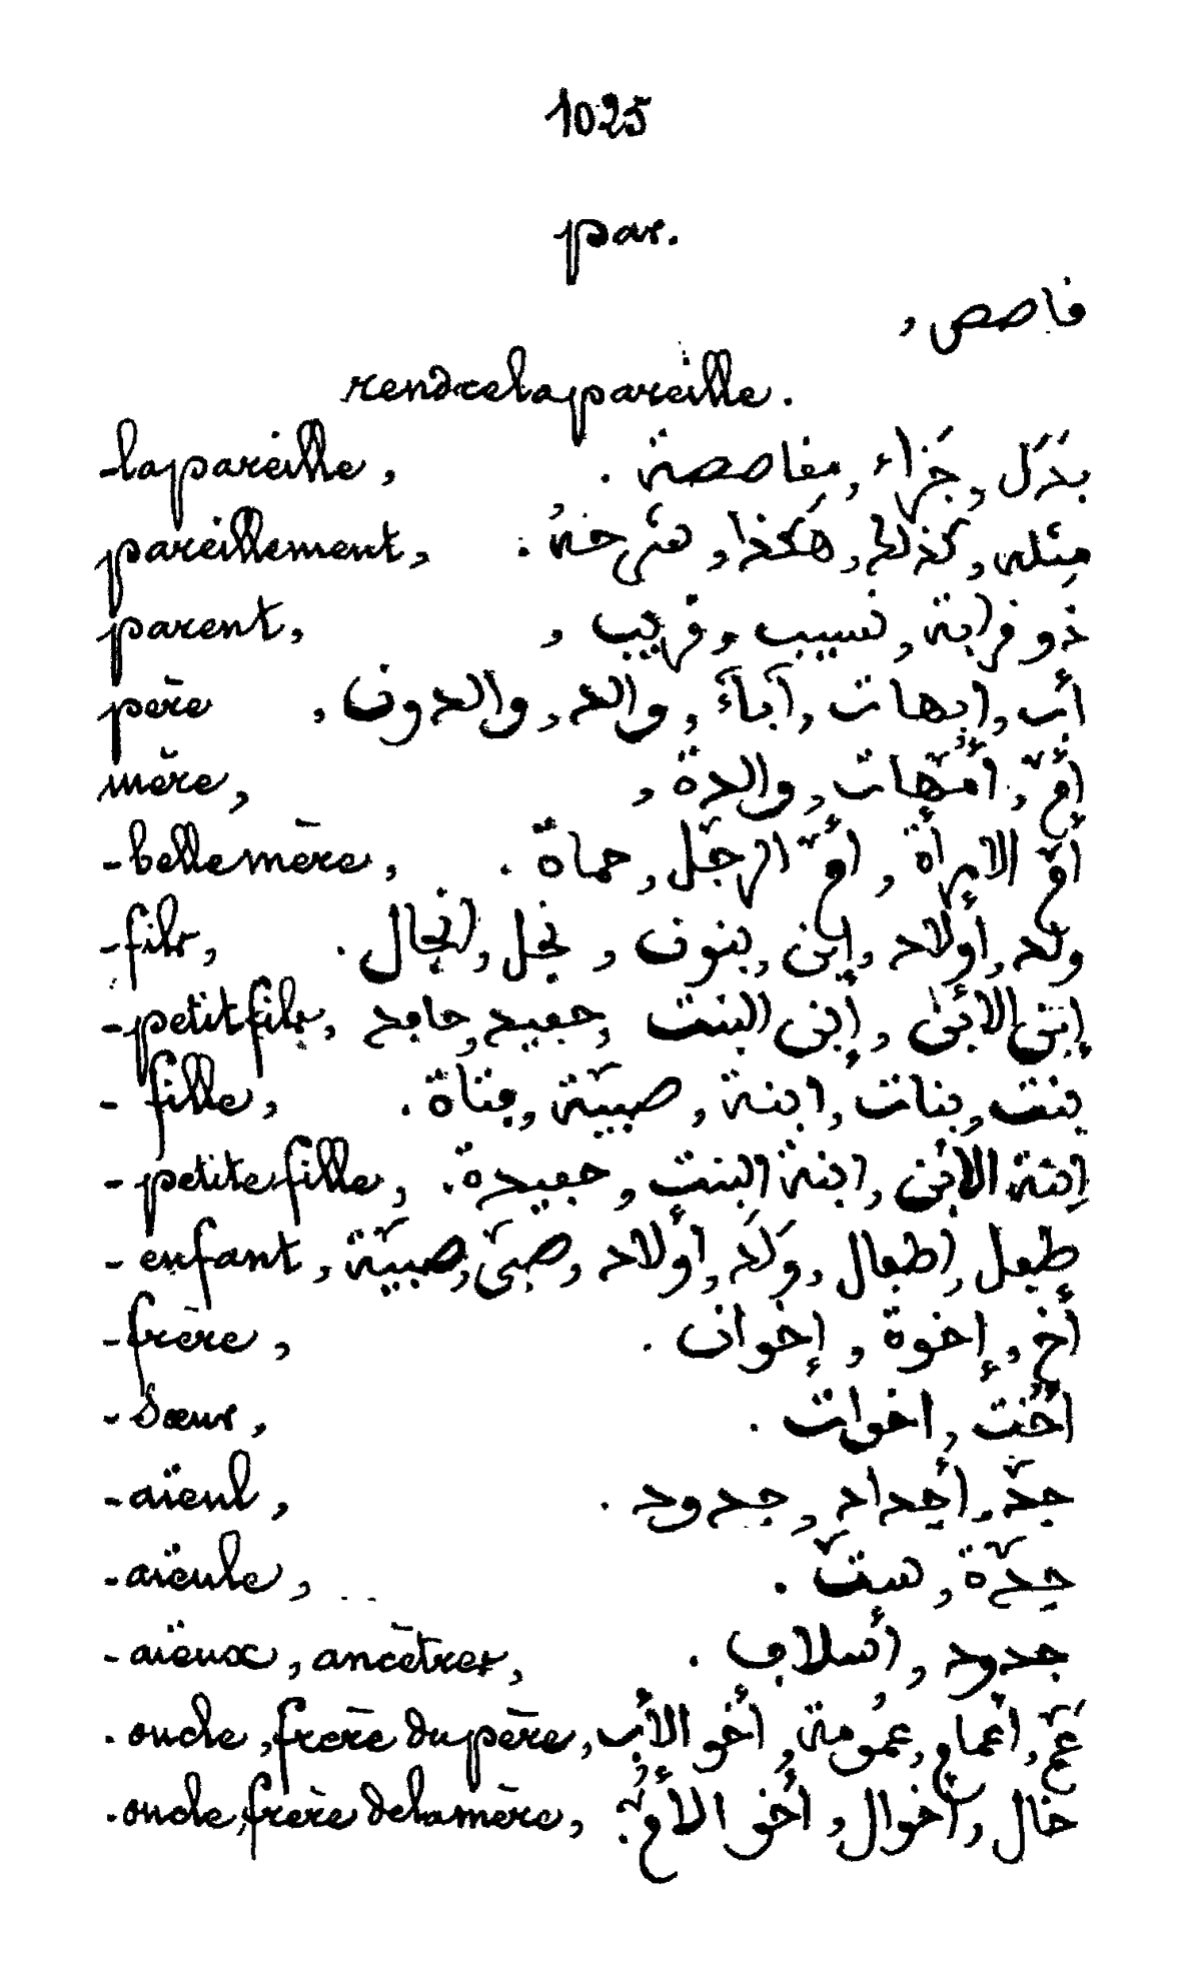 1025
par.
قاصص,
rendre la pareille.
-la pareille, بَدَل, جَزاء, مقاصصة.
pareillement, مِثله, كذلك, هَكَذا,
parent, ذو قرابة, نسيب, قريب,
père أب, ابهات, آباء, والد, والدون,
mère, أمّ, أمّهات, والدة,
-belle mère, أمّ الامرأة, أمّ الرجّل, حماة.
-fils, ولد, أولاد, إبن, بنون, نجل, انجال.
-petit fils, إبن الابن, إبن البنت, حفيد, حافد
- fille, بنت, بنات, ابنة, صبيّة, فتاة.
- petite fille, إبنة الابن, ابنة البنت, حفيدة.
- enfant, طفل, اطفال, وَلَد, أولاد, صبيّ, صبيّة
-frère, أخ, إخوة, إخوان.
- Sœur, أُخت, اخوات.
-aïeul, جدّ, أجداد, جدود.
-aïeule, جدّة, ستّ.
-aïeux, ancêtres, جدود, أسلاف.
. oncle, frère du père, عَمّ, أعمام, عمُومة, أخو الأب
. oncle, frère de la mère, خال, أخوال, أخو الأمّ.